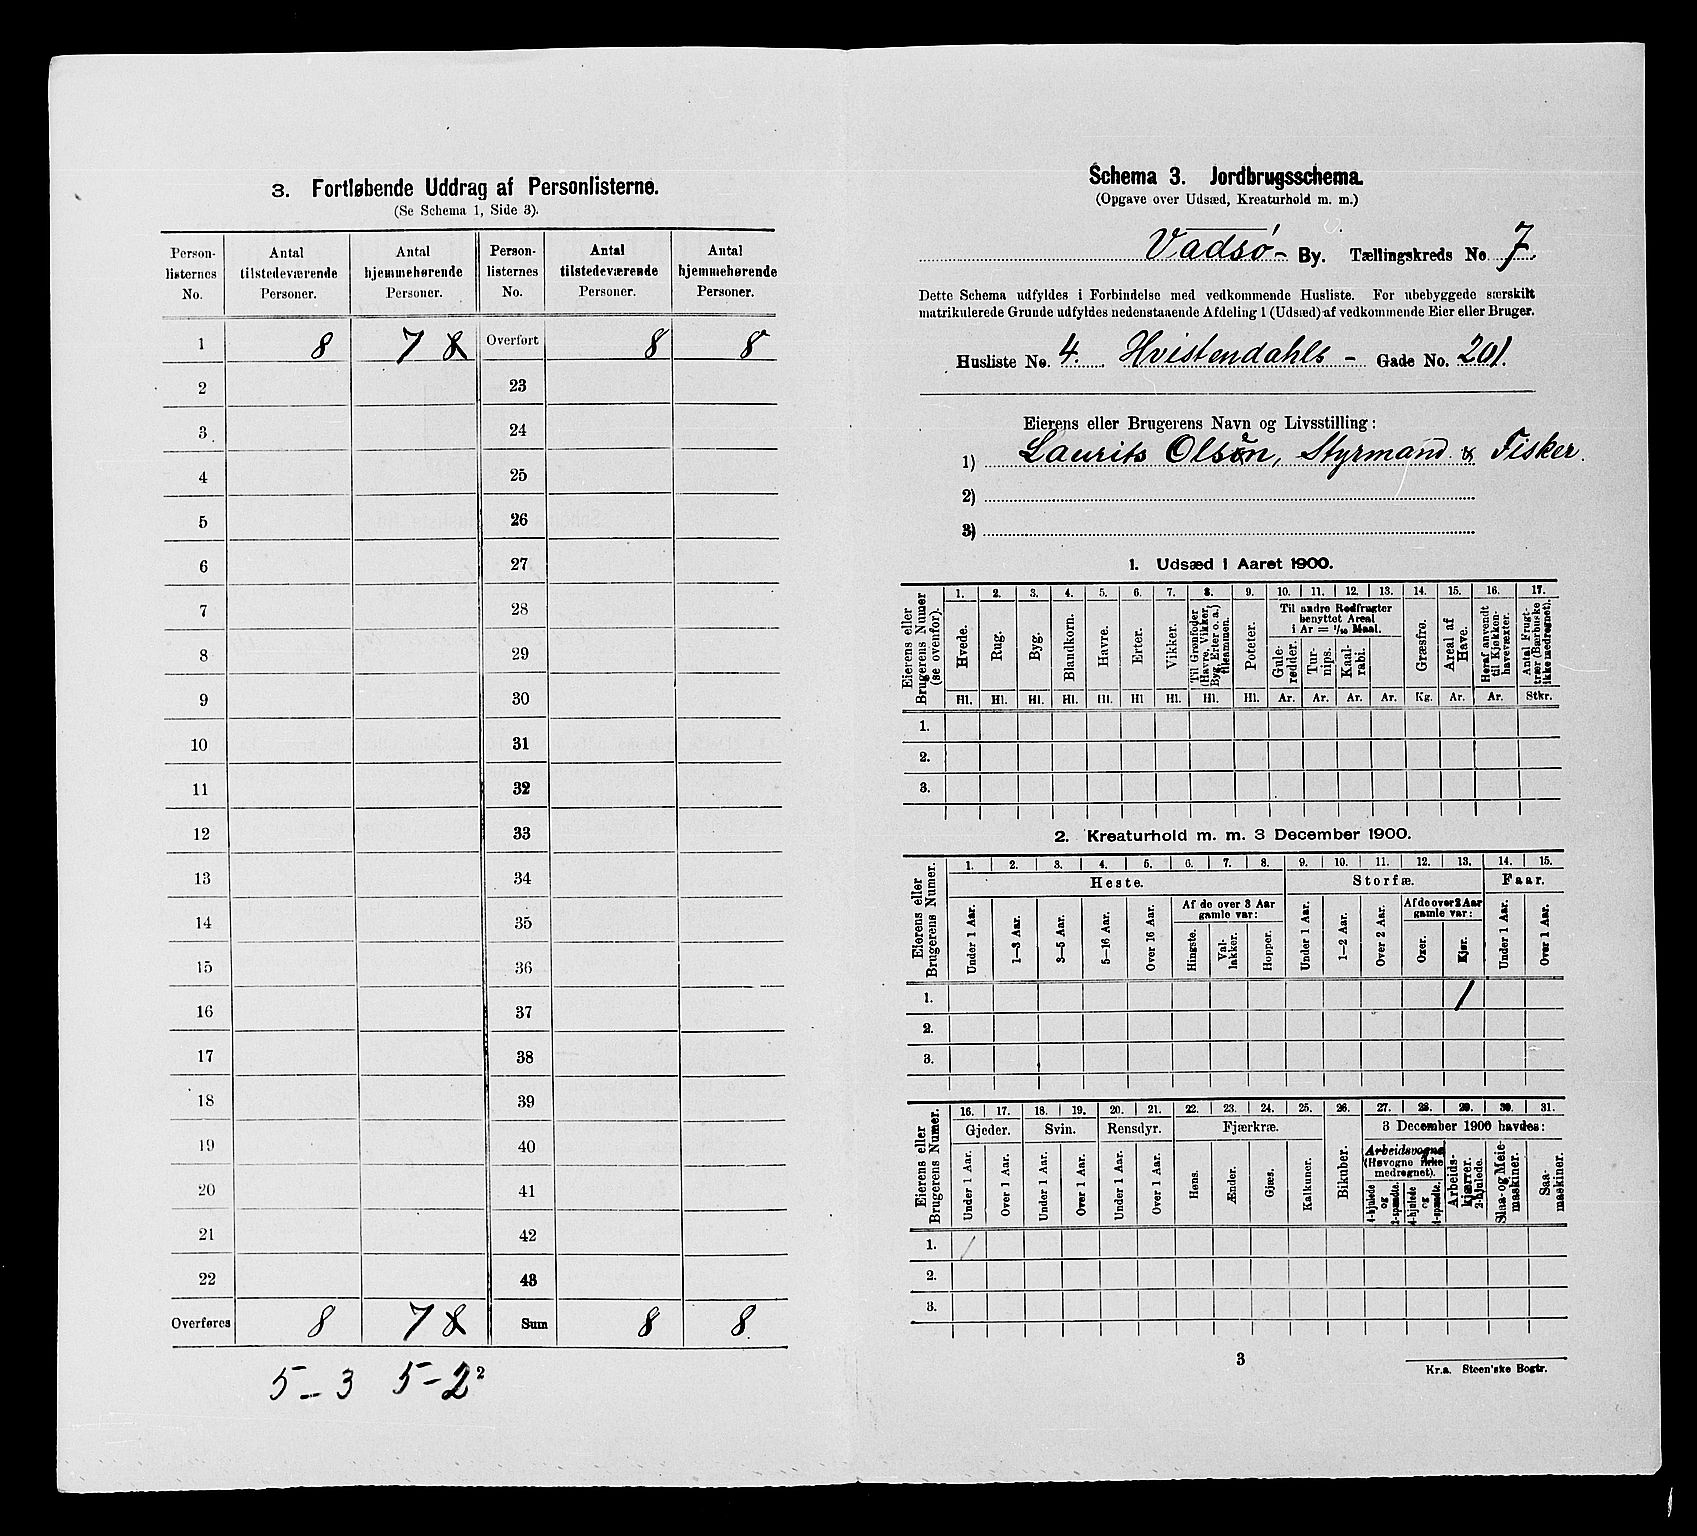 3. Fortløbende Uddrag af Personlisterne.
(Se Schema 1, Side 3).
Person-listernes No. | Antal tilstedeværende Personer. | Antal hjemmehørende Personer. | Person-listernes No. | Antal tilstedeværende Personer. | Antal hjemmehørende Personer.
1 | 8 | 7 8 | Overført | 8 | 8
2 | 23
3 | 24
4 | 25
5 | 26
6 | 27
7 | 28
8 | 29
9 | 30
10 | 31
11 | 32
12 | 33
13 | 34
14 | 35
15 | 36
16 | 37
17 | 38
18 | 39
19 | 40
20 | 41
21 | 42
22 | 43
Overføres | 8 | 7 8 | Sum | 8 | 8
5-3 5-2²
Schema 3. Jordbrugsschema.
(Opgave over Udsæd, Kreaturhold m. m.)
Vadsø - By. Tællingskreds No. 7.
Dette Schema udfyldes i Forbindelse med vedkommende Husliste. For ubebyggede særskilt
matrikulerede Grunde udfyldes nedenstaaende Afdeling 1 (Udsæd) af vedkommende Eier eller Bruger.
Husliste No. 4. Hvistendahls - Gade No. 201.
Eierens eller Brugerens Navn og Livsstilling:
1) Laurits Olsen, Styrmand & Fisker.
2)
3)
1. Udsæd i Aaret 1900.
Eierens eller Brugerens Numer (se ovenfor).
1. | 2. | 3. | 4. | 5. | 6. | 7. | 8. | 9. | 10. | 11. | 12. | 13. | 14. | 15. | 16. | 17.
Hvede. | Rug. | Byg. | Blandkorn. | Havre. | Erter. | Vikker. | Til Grønfoder (Havre, Vikker, Byg, Erter o. a.) tilsammen. | Poteter. | Til andre Rodfrugter benyttet Areal i Ar = 1/10 Maal. | Gulerødder. | Turnips. | Kaalrabi. | Græsfrø. | Areal af Have. | Heraf anvendt til Kjøkkenhavevæxter. | Antal Frugttrær (Bærbuske ikke medregnet).
Hl. | Hl. | Hl. | Hl. | Hl. | Hl | Hl. | Hl. | Hl. | Ar. | Ar. | Ar. | Ar. | Kg. | Ar. | Ar. | Stkr.
1.
2.
3.
2. Kreaturhold m. m. 3 December 1900.
Eierens eller Brugerens Numer.
1. | 2. | 3. | 4. | 5. | 6. | 7. | 8. | 9. | 10. | 11. | 12. | 13. | 14. | 15.
Heste. | Storfæ. | Faar.
Under 1 Aar. | 1—3 Aar. | 3—5 Aar. | 5—16 Aar. | Over 16 Aar. | Af de over 3 Aar gamle var: | Hingste. | Vallakker. | Hopper. | Under 1 Aar. | 1—2 Aar. | Over 2 Aar. | Af de over 2 Aar gamle var: | Oxer. | Kjør. | Under 1 Aar. | Over 1 Aar.
1. | 1
2.
3.
Eierens eller Brugerens Numer.
16. | 17. | 18. | 19. | 20. | 21. | 22. | 23. | 24. | 25. | 26. | 27. | 28. | 29. | 30. | 31.
Gjeder. | Svin. | Rensdyr. | Fjærkræ. | Bikuber. | 3 December 1900 havdes:
Under 1 Aar. | Over 1 Aar. | Under 1 Aar. | Over 1 Aar. | Under 1 Aar. | Over 1 Aar. | Høns. | Ænder. | Gjæs. | Kalkuner. | Arbeidsvogne (Høvogne ikke medregnet). | 4-hjulede og 2-spændte. | 4-hjulede og 1-spændte. | Arbeidskjærrer. 2-hjulede. | Slaa- og Meiemaskiner. | Saamaskiner.
1. | /
2.
3.
3
Kr.a. Steen'ske Bogtr.